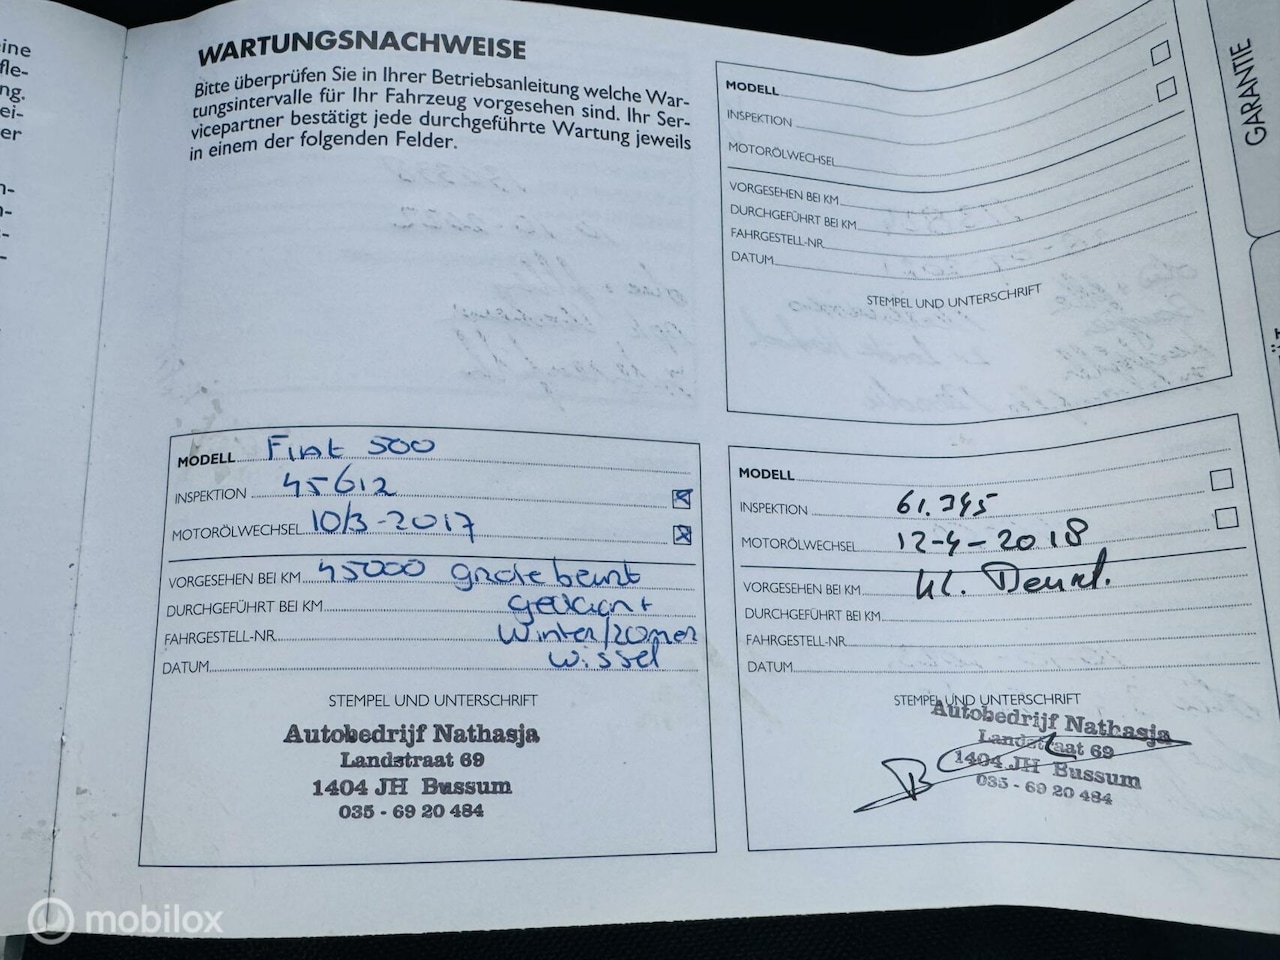 ine
fle-
ng.
ei-
er
n-
WARTUNGSNACHWEISE
Bitte überprüfen Sie in Ihrer Betriebsanleitung welche War-
tungsintervalle für Ihr Fahrzeug vorgesehen sind. Ihr Ser-
vicepartner bestätigt jede durchgeführte Wartung jeweils
in einem der folgenden Felder.
MODELL
INSPEKTION
MOTORÖLWECHSEL
VORGESEHEN BEI KM
DURCHGEFÜHRT BEI KM
FAHRGESTELL-NR.
DATUM
STEMPEL UND UNTERSCHRIFT
GARANTIE
MODELL Fiat 500
INSPEKTION 45612
MOTORÖLWECHSEL 10/3-2017
VORGESEHEN BEI KM 45000 grote beurt
DURCHGEFÜHRT BEI KM
FAHRGESTELL-NR. Winter/zomer
DATUM wissel
STEMPEL UND UNTERSCHRIFT
Autobedrijf Nathasja
Landstraat 69
1404 JH Bussum
035 - 69 20 484
MODELL
INSPEKTION 61.345
MOTORÖLWECHSEL 12-4-2018
VORGESEHEN BEI KM kl. Beurt.
DURCHGEFÜHRT BEI KM
FAHRGESTELL-NR.
DATUM
STEMPEL UND UNTERSCHRIFT
Autobedrijf Nathasja
Landstraat 69
1404 JH Bussum
035 - 69 20 484
mobilox